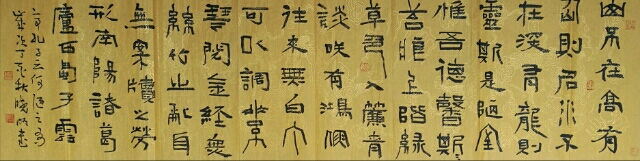 山不在高有
仙則名水不
在深有龍則
靈斯是陋室
惟吾德馨
苔痕上階綠
草色入簾青
談咲有鴻儒
往來無白丁
可以調素
琴閱金經無
絲竹之亂耳
無案牘之勞
形南陽諸葛
廬西蜀子雲
亭孔子云何陋之有
歲次丁亥秋